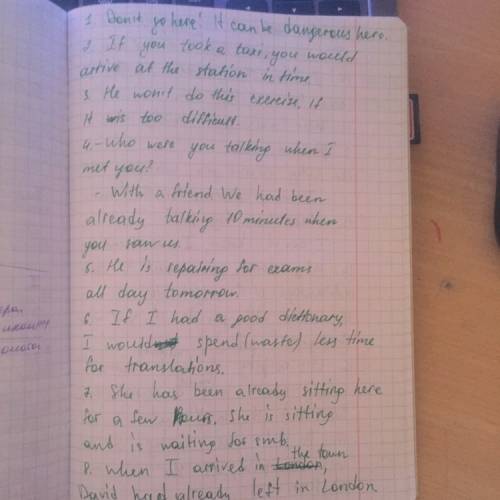 1. Don't go here! It can be dangerous here.
2. If you took a taxi, you would
arrive at the station in time.
3. He won't do this exercise, if
it is too difficult.
4. - Who were you talking when I
met you?
- With a friend. We had been
already talking 10 minutes when
you saw us.
5. He is repairing for exams
all day tomorrow.
6. If I had a good dictionary,
I would spend (waste) less time
for translations.
7. She has been already sitting here
for a few hours. She is sitting
and is waiting for smb.
8. When I arrived in London the town,
David had already left in London